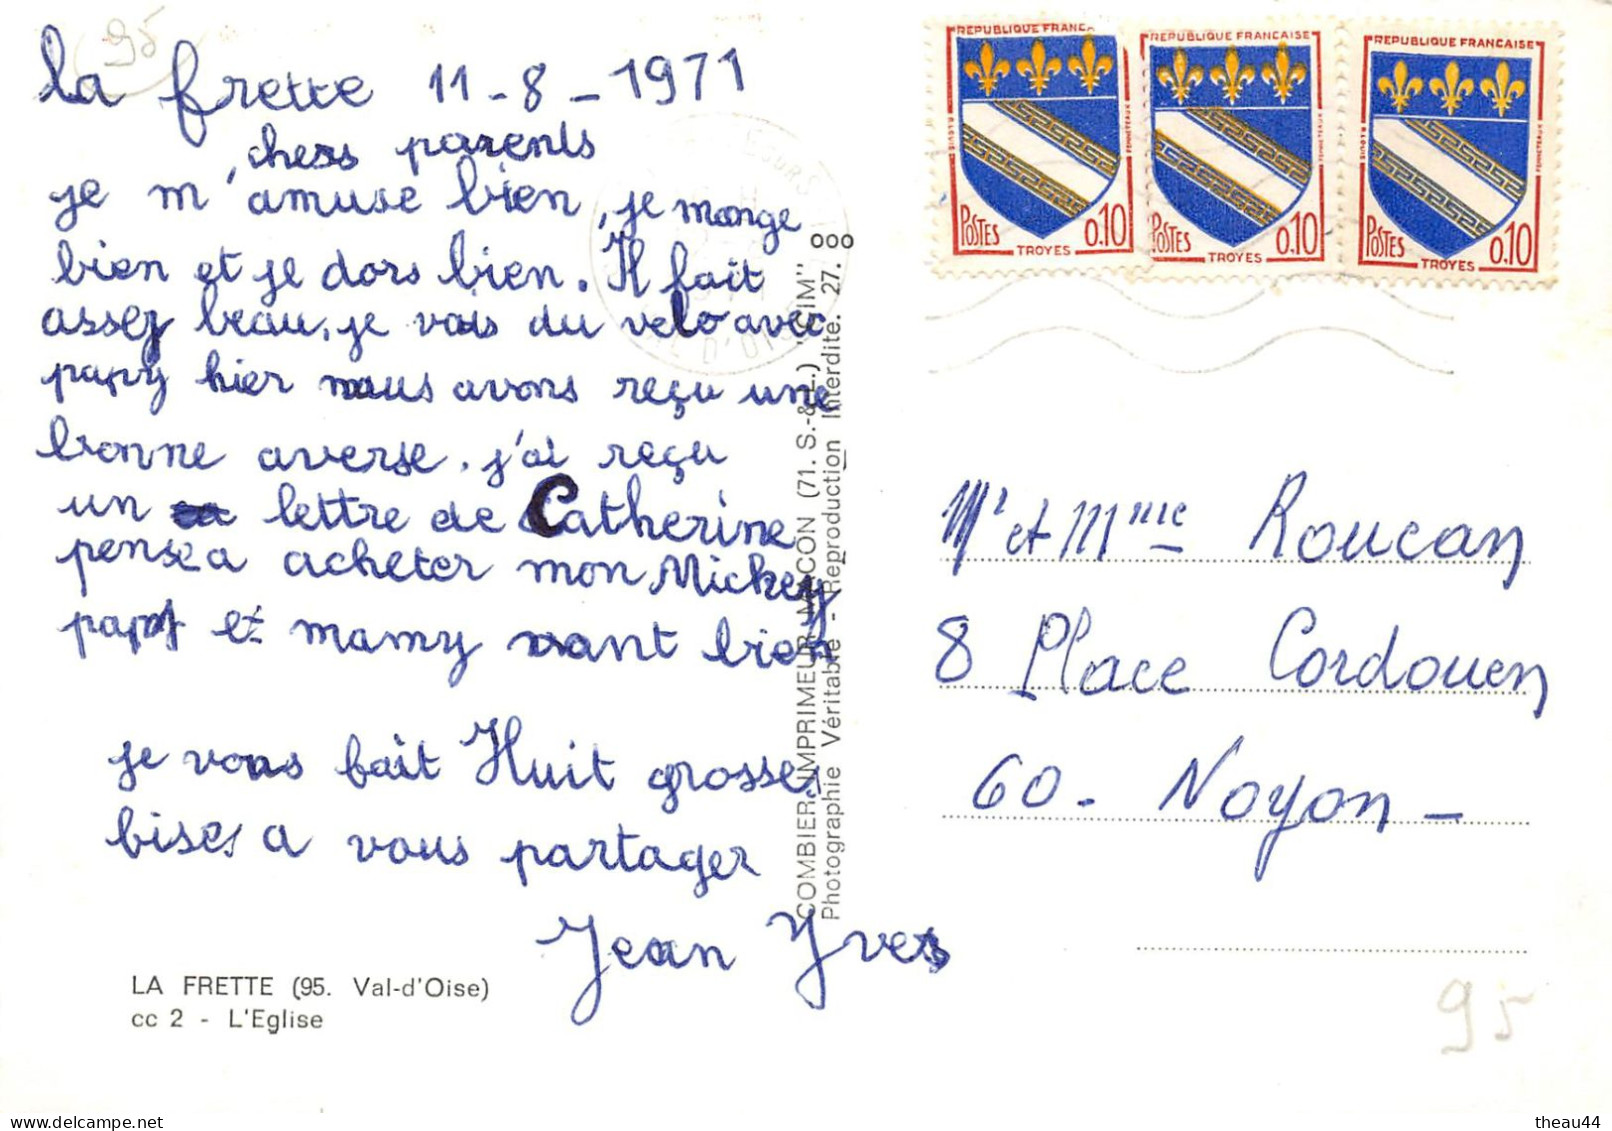 95
la frette 11-8-1971
chers parents
je m'amuse bien, je mange
bien et je dors bien. Il fait
assez beau, je vais du velo avec
papy hier nous avons reçu une
bonne averse. j'ai reçu
un lettre de Catherine
pense a acheter mon Mickey
papy et mamy vont bien
je vous fait Huit grosses
bises a vous partager
Jean Yves
LA FRETTE (95. Val-d'Oise)
cc 2 - L'Eglise
COMBIER IMPRIMEUR MACON (71. S.-&-L.) "CIM"
Photographie Véritable - Reproduction Interdite. 27.
000
REPUBLIQUE FRANC
POSTES 0.10
TROYES
REPUBLIQUE FRANCAISE
POSTES 0.10
TROYES
REPUBLIQUE FRANCAISE
POSTES 0.10
TROYES
VAL D'OISE
Mr et Mme Roucan
8 Place Cordouen
60 - Noyon -
95
theau44